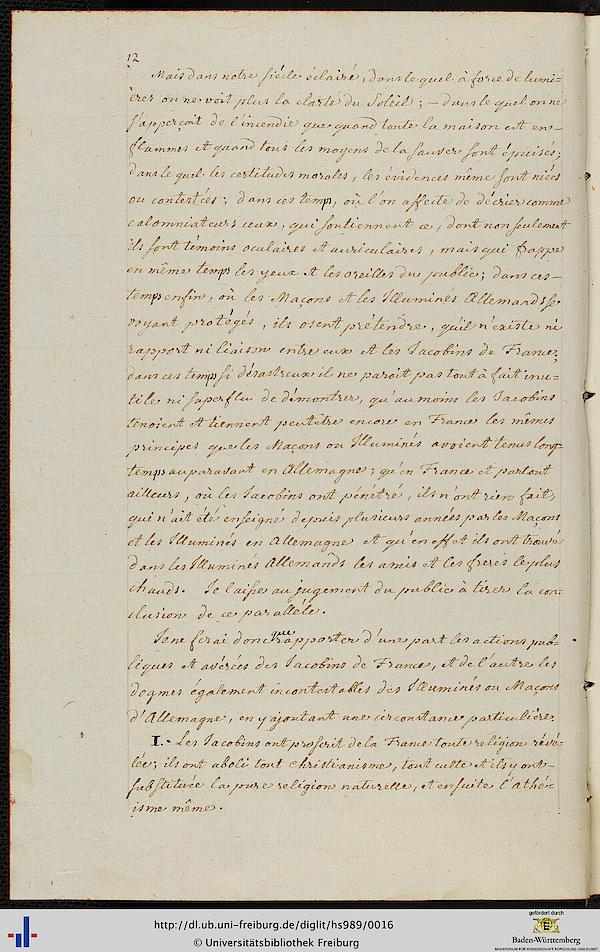 12
Mais dans notre siécle éclairé, dans le quel à force de lumi=
ères on ne voit plus la clarté du Soleil ; — dans le quel on ne
s'apperçoit de l'incendie que quand toute la maison est en=
flammes et quand tous les moyens de la sauver sont épuisés;
dans le quel les certitudes morales, les évidences même sont niées
ou contestées ; dans ces temps, où l'on affecte de décrier comme
calomniateurs ceux, qui soutiennent ce, dont non seulement
ils sont témoins oculaires et auriculaires, mais qui frappe
en même temps les yeux et les oreilles du public; dans ces=
temps enfin, où les Maçons et les Illuminés Allemands se
voyant protégés, ils osent prétendre, qu'il n'existe ni
rapport ni liaison entre eux et les Jacobins de France;
dans ces temps si désastreux il ne paroit pas tout à fait inu=
tile ni superflu de démontrer, qu'au moins les Jacobins
tenoient et tiennent peutêtre encore en France les mêmes
principes que les Maçons ou Illuminés avoient tenus long=
temps auparavant en Allemagne; qu'en France et partout
ailleurs, où les Jacobins ont pénétré, ils n'ont rien fait,
qui n'ait été enseigné depuis plusieurs années par les Maçons
et les Illuminés en Allemagne et qu'en effet ils ont trouvé
dans les Illuminés Allemands les amis et les freres le plus
chauds. Je laisse au jugement du public à tirer la con=
clusion de ce paralléle.
Je ne ferai donc que rapporter d'une part les actions pub=
liques et avérées des Jacobins de France, et de l'autre les
dogmes également incontestables des Illuminés ou Maçons
d'Allemagne, en y ajoutant une circonstance particulière.
I.- Les Jacobins ont proscrit de la France toute religion révé=
lée; ils ont aboli tout christianisme, tout culte et ils y ont=
substituée la pure religion naturelle, et ensuite l'athé=
isme même.
http://dl.ub.uni-freiburg.de/diglit/hs989/0016
© Universitätsbibliothek Freiburg
gefördert durch
Baden-Württemberg
MINISTERIUM FÜR WISSENSCHAFT, FORSCHUNG UND KUNST